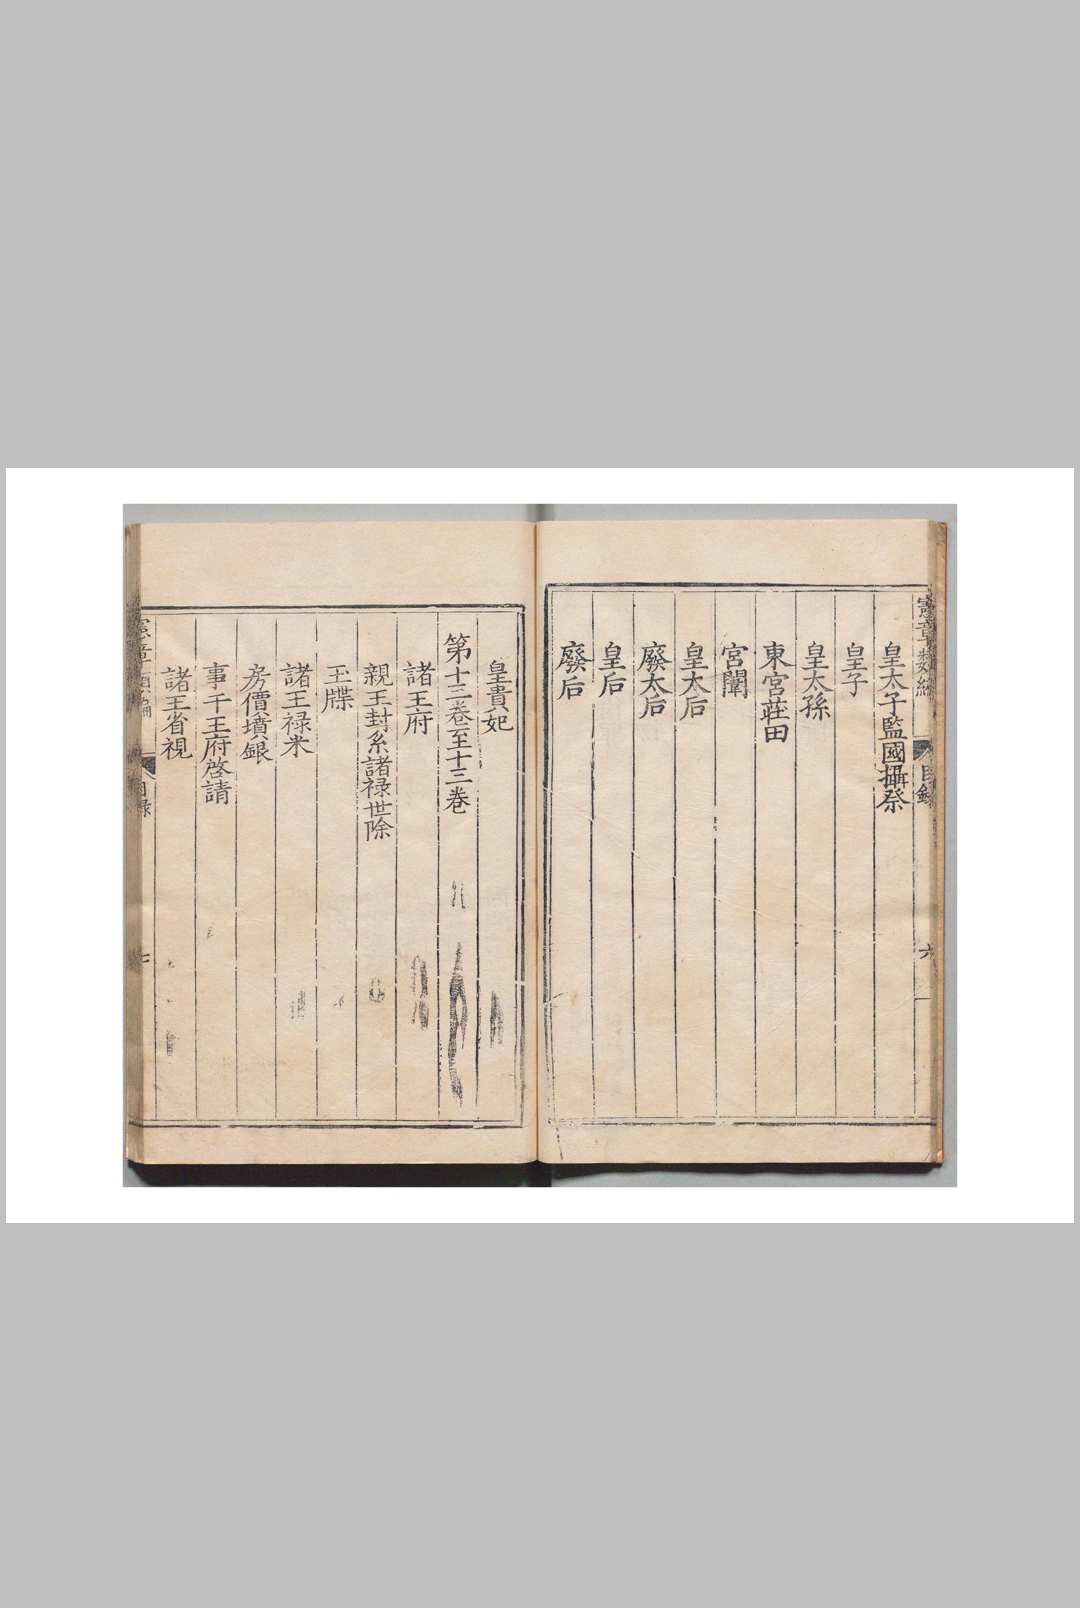 憲章類編
目錄
六
皇太子監國攝祭
皇子
皇太孫
東宮莊田
宮闈
皇太后
廢太后
皇后
廢后
皇貴妃
第十三卷至十三卷
諸王府
親王封系諸祿世除
玉牒
諸王祿米
房價墳銀
事干王府啓請
諸王省視
憲章類編
目錄
七